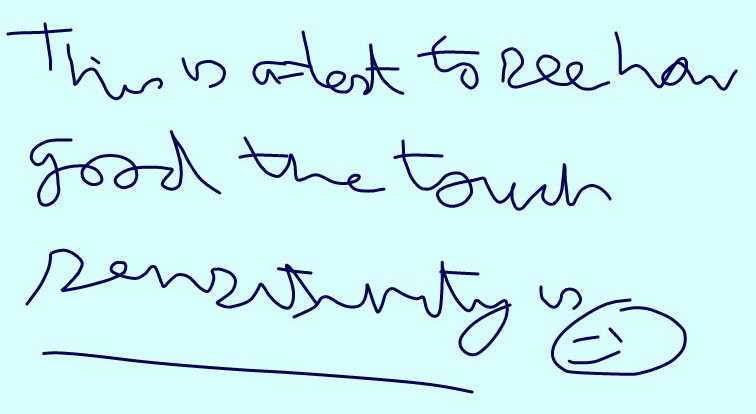 This is a test to see how
good the touch
sensitivity is